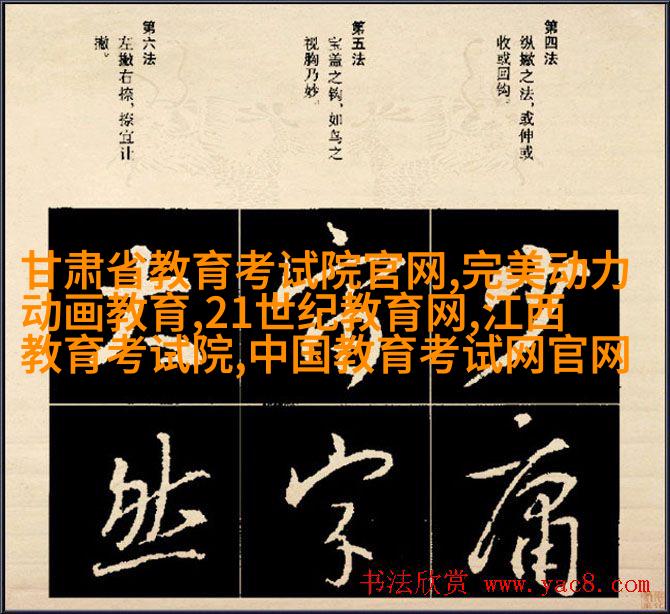 第四法
纵撇之法，或伸或
收或回钩。
第五法
宝盖之钩，如鸟之
视胸乃妙。
第六法
左撇右捺，捺宜让
撇。
甘肃省教育考试院官网,完美动力
动画教育,21世纪教育网,江西
教育考试院,中国教育考试网官网
少
庸
字
然
书法欣赏 www.yac8.com